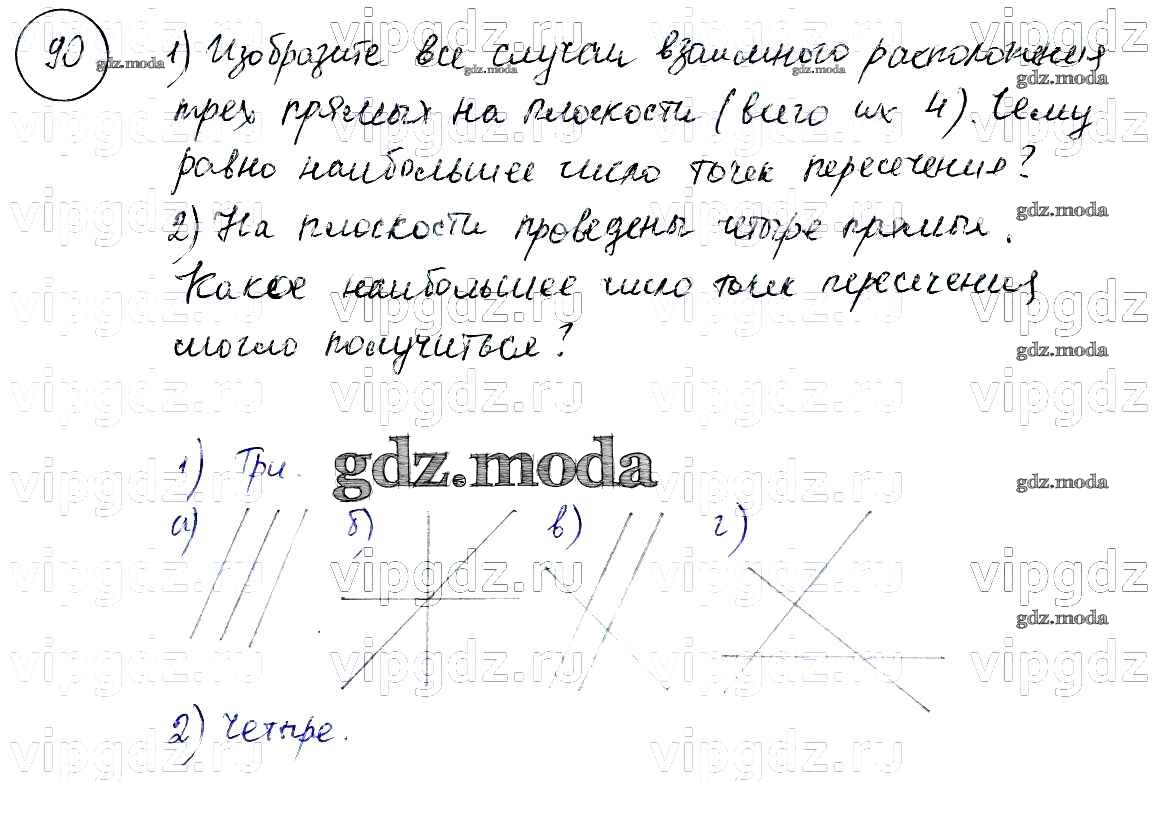 90
1) Изобразите все случаи взаимного расположения
трех прямых на плоскости (всего их 4). Чему
равно наибольшее число точек пересечения?
2) На плоскости проведены четыре прямые.
Какое наибольшее число точек пересечения
могло получиться?
1) Три.
gdz.moda
а) б) в) г)
2) Четыре.
vipgdz.ru
gdz.moda